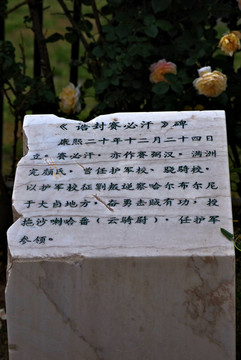 《诰封赛必汗》碑
康熙二十年十二月二十四日
立。赛必汗，亦作赛弼汉。满洲
完颜氏。曾任护军校、骁骑校。
以护军校征剿叛逆察哈尔布尔尼
于大鲁地方。奋勇击贼有功，授
拖沙喇哈番（云骑尉）。任护军
参领。